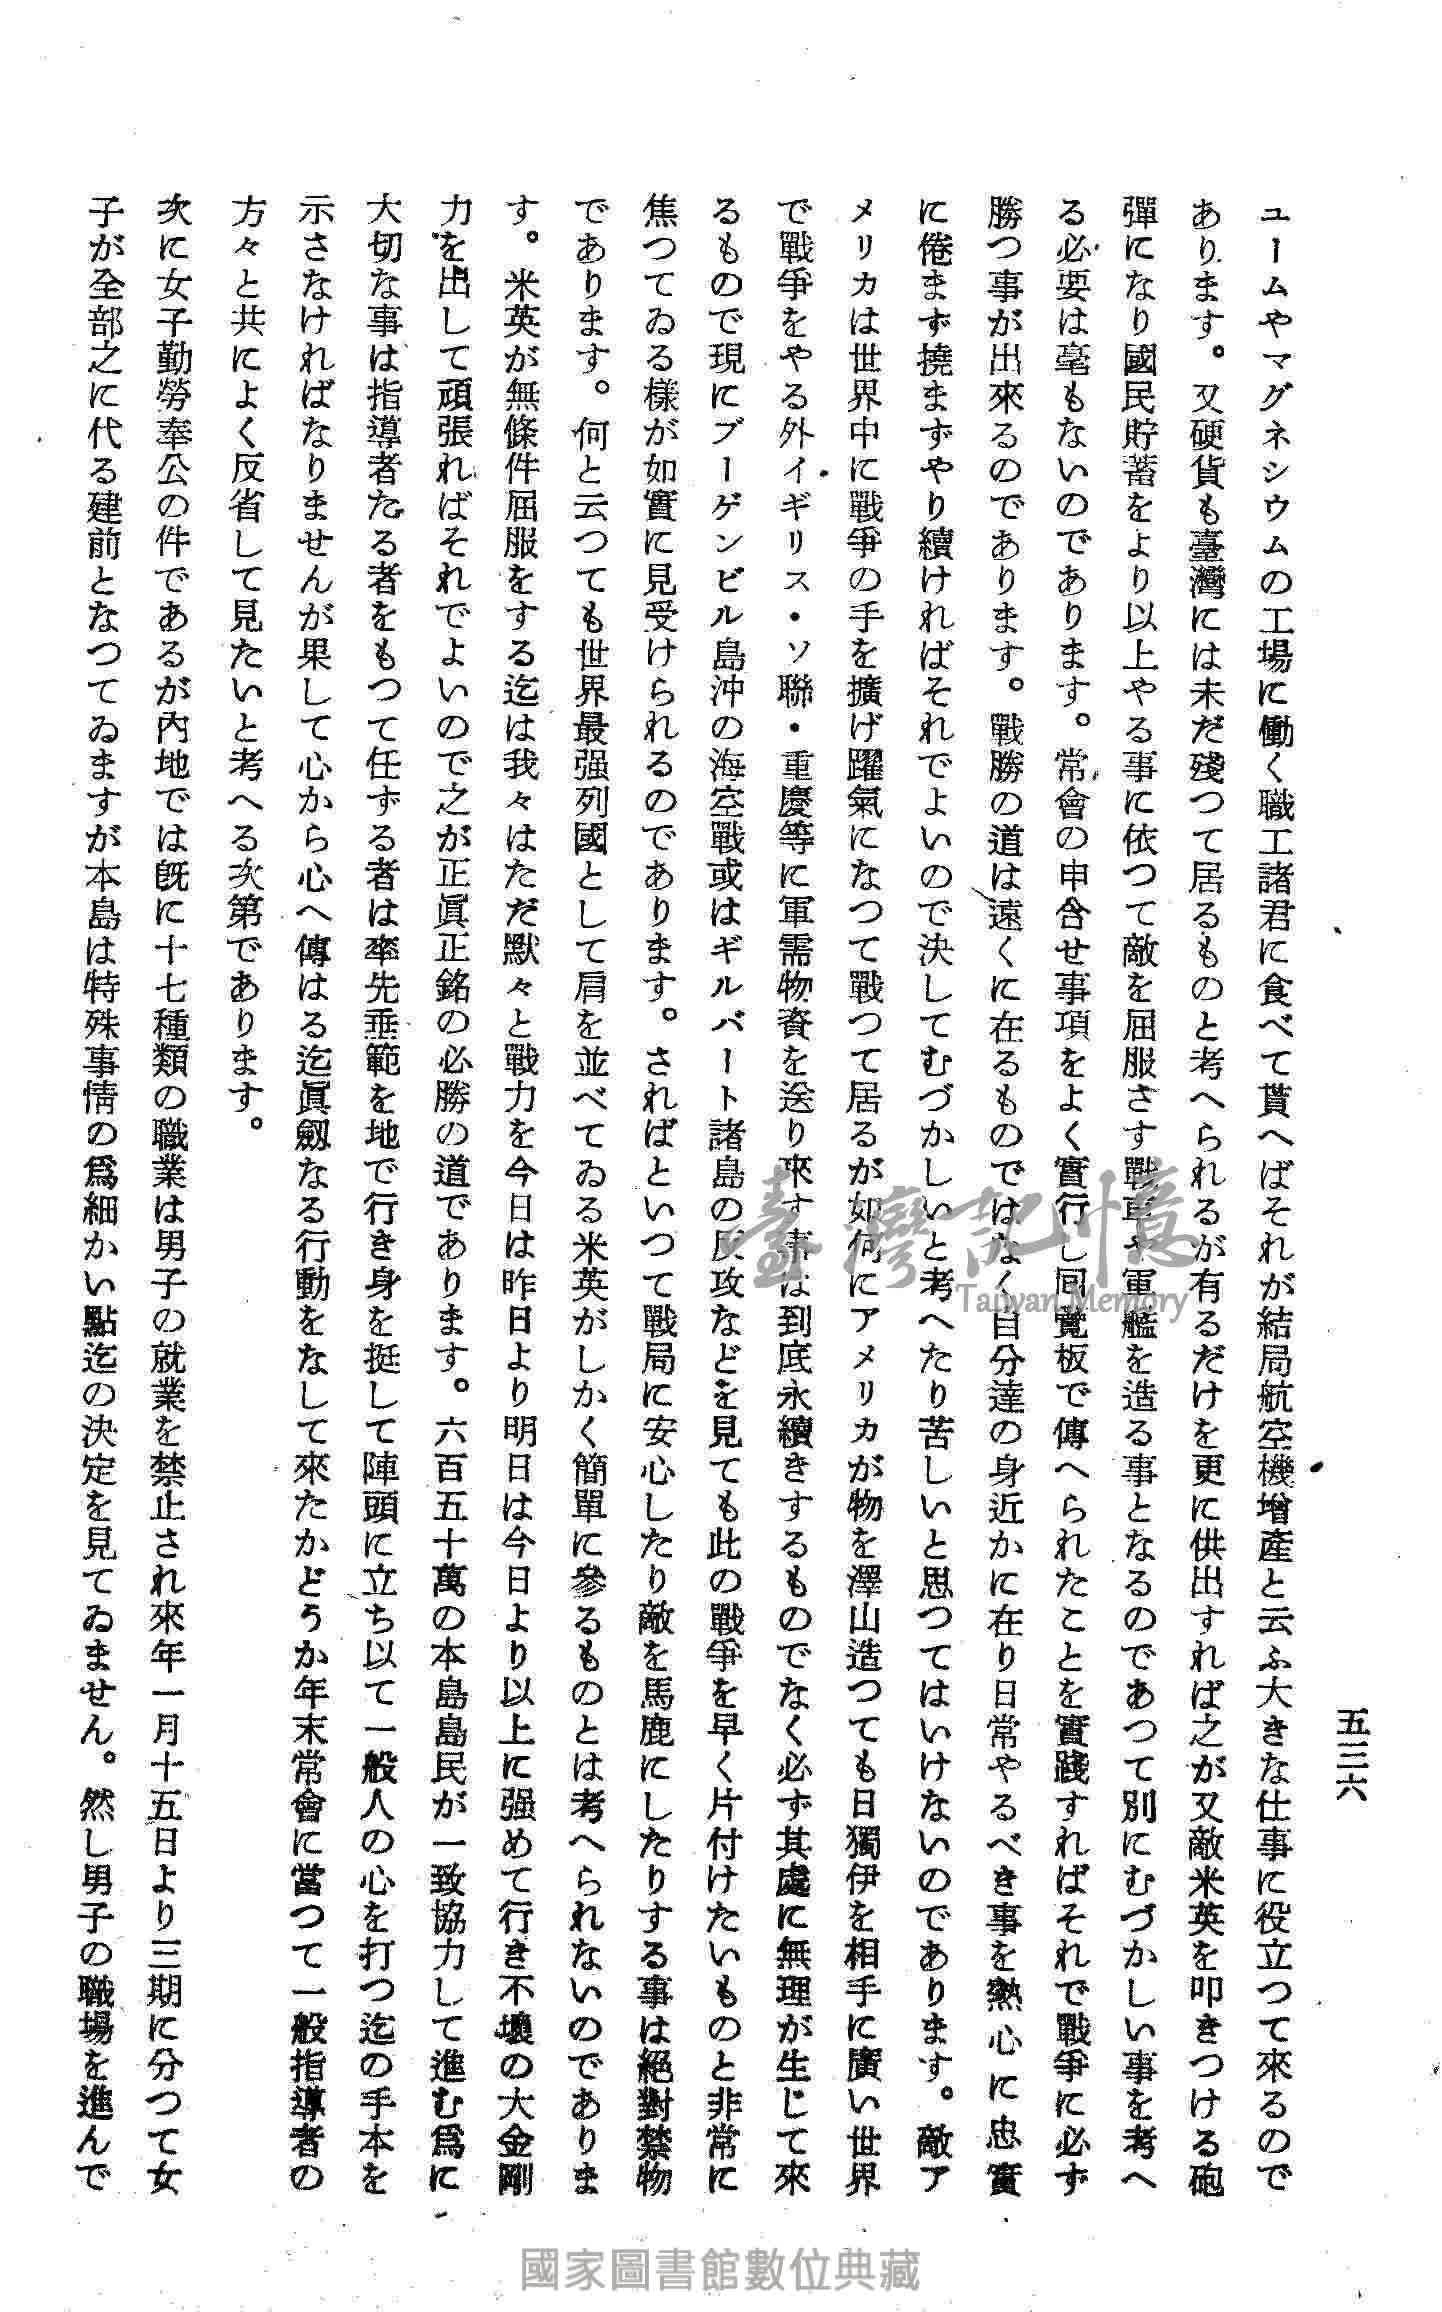 五三六
ユームやマグネシウムの工場に働く職工諸君に食べて貰へばそれが結局航空機增產と云ふ大きな仕事に役立つて來るので
あります。又硬貨も臺灣には未だ殘つて居るものと考へられるが有るだけを更に供出すれば之が又敵米英を叩きつける砲
彈になり國民貯蓄をより以上やる事に依つて敵を屈服さす戰車や軍艦を造る事となるのであつて別にむづかしい事を考へ
る必要は毫もないのであります。常會の申合せ事項をよく實行し回覽板で傳へられたことを實踐すればそれで戰爭に必ず
勝つ事が出來るのであります。戰勝の道は遠くに在るものではなく自分達の身近かに在り日常やるべき事を熱心に忠實
に倦まず撓まずやり續ければそれでよいので决してむづかしいと考へたり苦しいと思つてはいけないのであります。敵ア
メリカは世界中に戰爭の手を擴げ躍氣になつて戰つて居るが如何にアメリカが物を澤山造つても日獨伊を相手に廣い世界
で戰爭をやる外イギリス・ソ聯・重慶等に軍需物資を送り來す事は到底永續きするものでなく必ず其處に無理が生じて來
るもので現にブーゲンビル島沖の海空戰或はギルバート諸島の反攻などを見ても此の戰爭を早く片付けたいものと非常に
焦つてゐる樣が如實に見受けられるのであります。さればといつて戰局に安心したり敵を馬鹿にしたりする事は絕對禁物
であります。何と云つても世界最强列國として肩を並べてゐる米英がしかく簡單に參るものとは考へられないのでありま
す。米英が無條件屈服をする迄は我々はただ默々と戰力を今日は昨日より明日は今日より以上に强めて行き不壞の大金剛
力を出して頑張ればそれでよいので之が正眞正銘の必勝の道であります。六百五十萬の本島島民が一致協力して進む爲に
大切な事は指導者たる者をもつて任ずる者は率先垂範を地で行き身を挺して陣頭に立ち以て一般人の心を打つ迄の手本を
示さなければなりませんが果して心から心へ傳はる迄眞劔なる行動をなして來たかどうか年末常會に當つて一般指導者の
方々と共によく反省して見たいと考へる次第であります。
次に女子勤勞奉公の件であるが內地では旣に十七種類の職業は男子の就業を禁止され來年一月十五日より三期に分つて女
子が全部之に代る建前となつてゐますが本島は特殊事情の爲細かい點迄の決定を見てゐません。然し男子の職場を進んで
臺灣記憶
Taiwan Memory
國家圖書館數位典藏